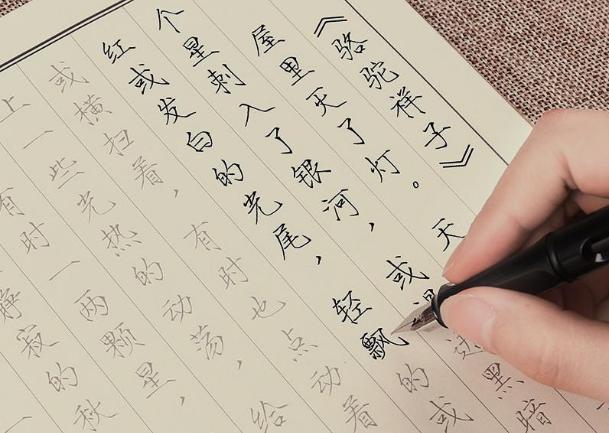 《骆驼祥子》
屋里灭了灯。天
个星刺入了银河，或进黑暗
红或发白的光尾，轻飘的或
或横扫着，有时也点动着
上一些光热的动荡，给
有时一两颗星，
静寂的秋